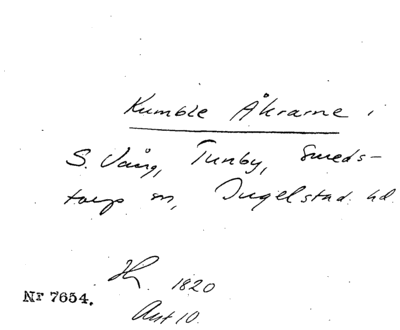 Kumble Åkrarne i
S. Vång, Tunby, Smeds-
torp sn, Ingelstad hd
1820
Nr 7654.
Akt 10.